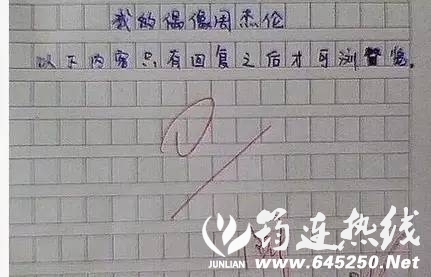 我的偶像周杰伦
以下内容只有回复之后才可浏览。
筠连热线
JUNLIAN
www.645250.Net